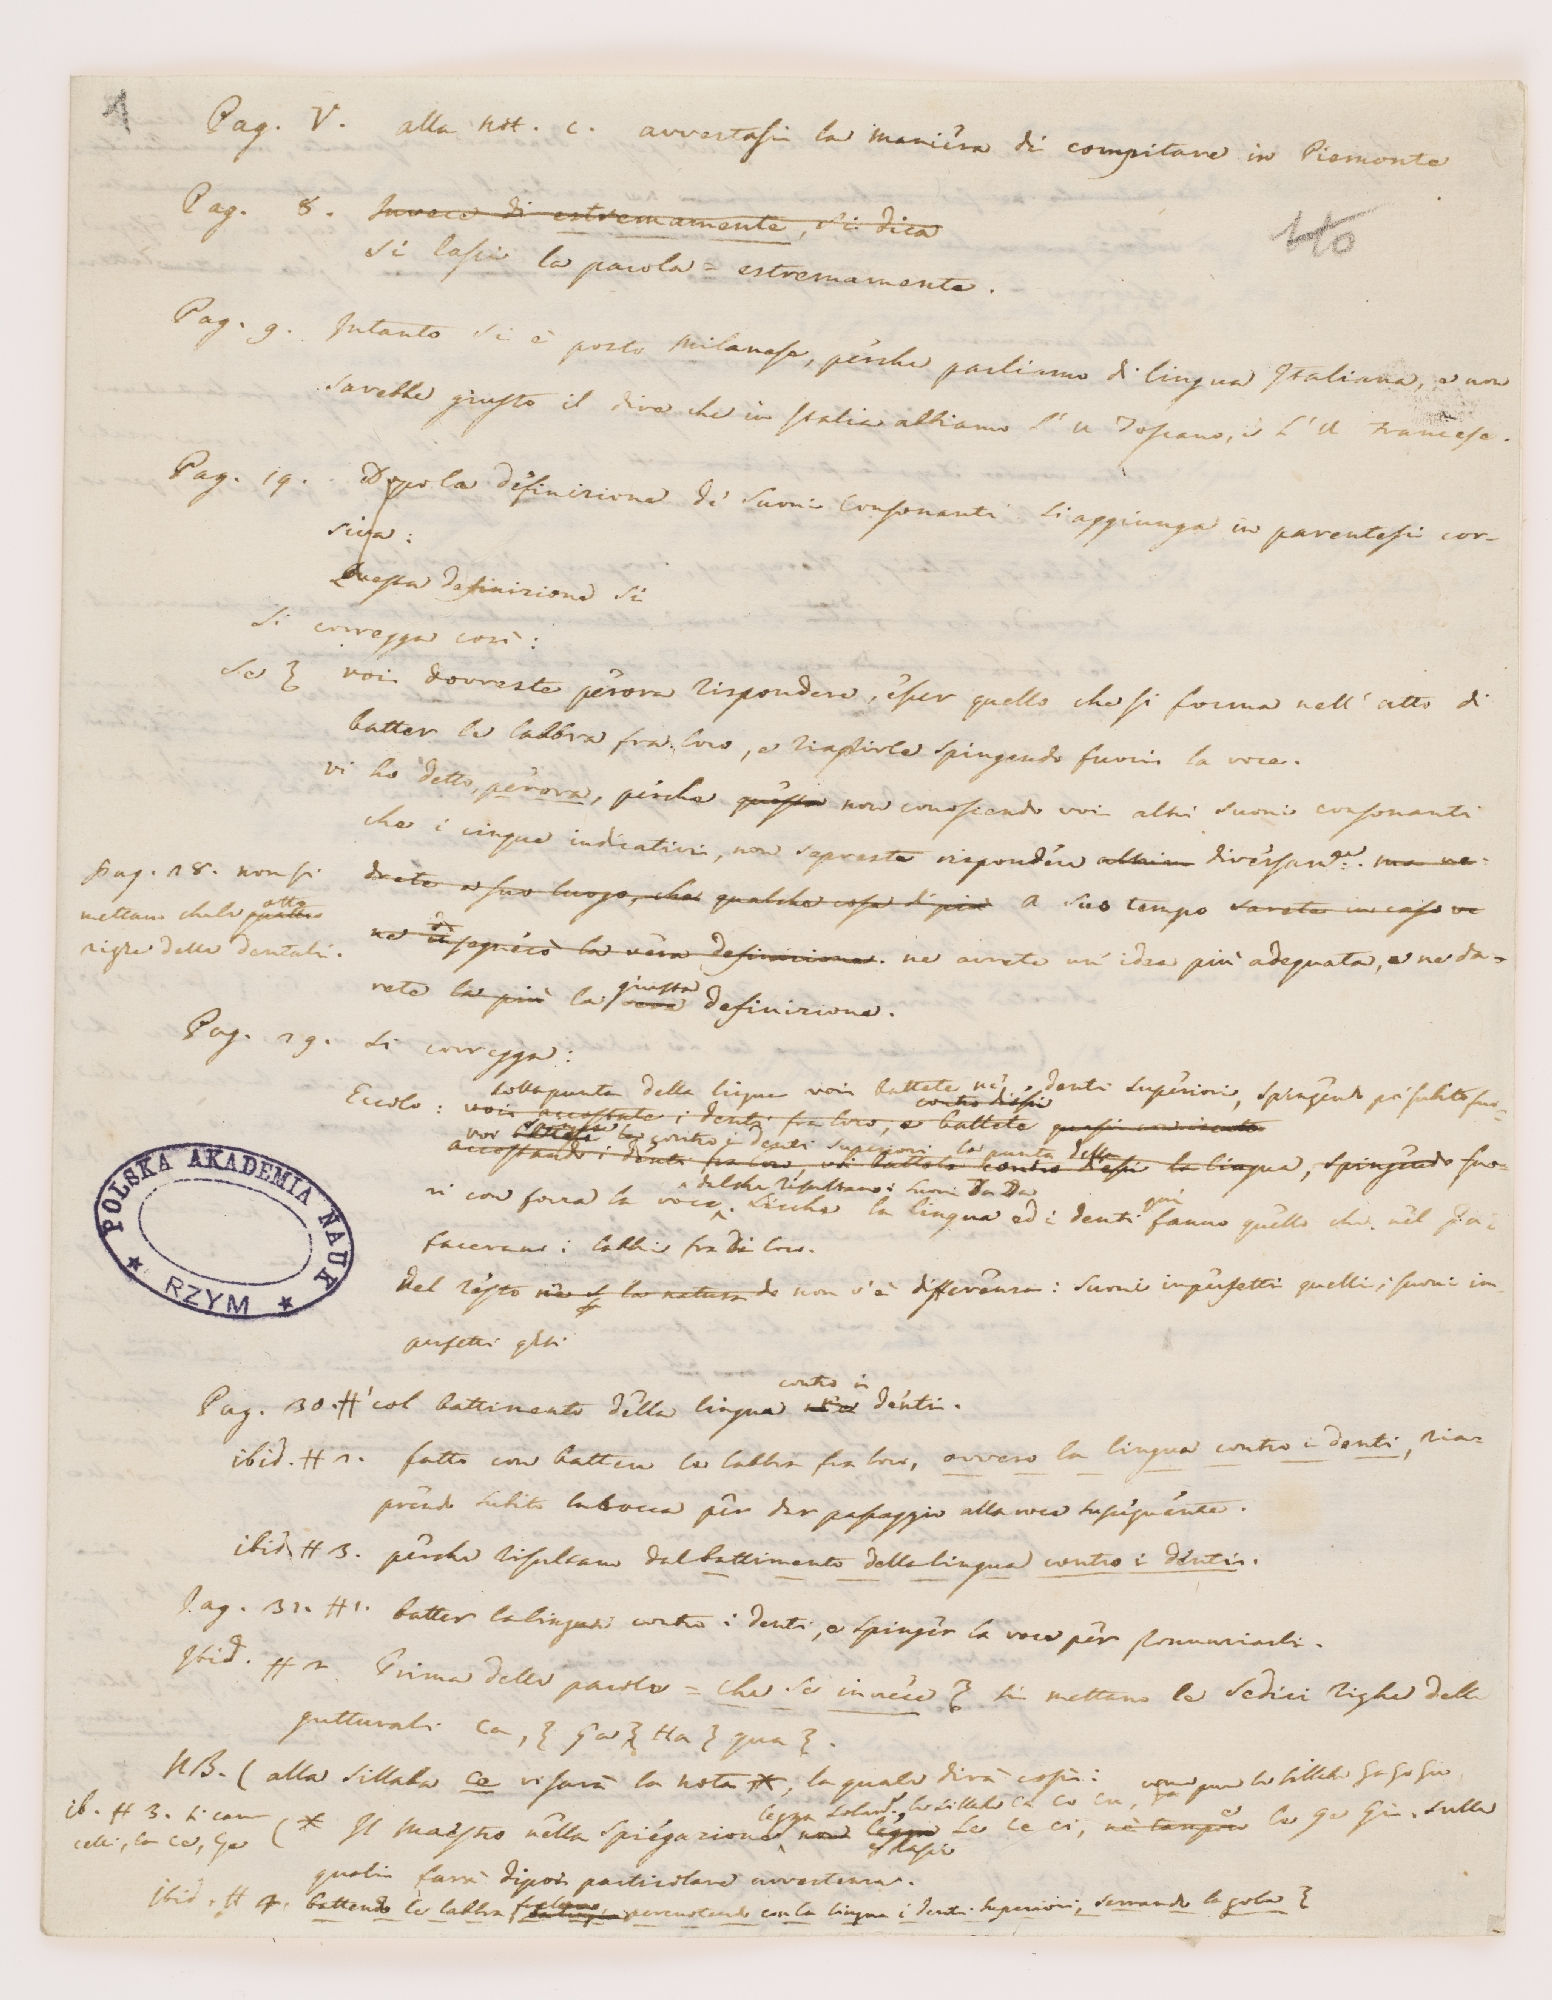 1
Pag. V. alla not. c. avvertasi la maniera di compitare in Piemonte
Pag. 8. Invece di estremamente, si dica
110
si lasci la parola = estremamente.
Pag. 9. Intanto si è posto Milanese, perche parliamo di lingua Italiana, e non
sarebbe giusto il dire che in Italia abbiamo l'u Toscano, e l'u Francese.
Pag. 19. Dopo la definizione de' suoni consonanti si aggiunga in parentesi cor-
siva:
Questa definizione si
si corregga così:
Se } voi dovreste perora rispondere, esser quello che si forma nell'atto di
batter le labbra fra loro, e riaprirle spingendo fuori la voce.
vi ho detto, perora, perche questa non conoscendo voi altri suoni consonanti
che i cinque indicativi, non sapreste rispondere diversam.te ma ne
Pag. 28. non si
mettano che le quattro otto
righe delle dentali.
drete a suo luogo, che qualche cosa di più a suo tempo sarete in caso
ne insegnerò la vera definizione. ne avrete un'idea più adeguata, e ne da-
rete la più la vera giusta definizione.
Pag. 29. si corregga:
colla punta della lingua voi battete ne' denti superiori, spingendo poi subito fuo-
Eccolo: voi accostate i denti fra loro, e battete contro di essi
voi battete contro i denti superiori la punta della
accostando i denti fra loro, contro d'essi la lingua, spingendo fuo-
dal che risultano i suoni Da Da
ri con forza la voce. Sicche la lingua ed i denti qui fanno quello che nel
facevano i labbri fra di loro.
Del resto la natura non v'è differenza: suoni imperfetti quelli, suoni im-
perfetti q.sti
Pag. 30. # col battimento della lingua contro i denti.
ibid. # 2. fatto con battere le labbra fra loro, ovvero la lingua contro i denti, ria-
prendo subito la bocca per dar passaggio alla voce susseguente.
ibid. # 3. perche risultano dal battimento della lingua contro i denti.
Pag. 31. # 1. batter la lingua contro i denti, e spinger la voce per pronunziarli.
Ibid. # 2 Prima delle parole = che se invece } si mettano le sedici righe delle
gutturali Ca, } Ga } Ha } qua }.
NB. ( alla sillaba ce vi sarà la nota *, la quale dirà così:
come pure le sillabe Ga Go Gu
ib. # 3. si can-
celli, la ce, Ge
legga solam.te le sillabe ca co cu,
( * Il Maestro nella spiegazione non legga le ce ci, nè tampoco le ge gi. sulle
e lasci
quali farà dipoi particolare avvertenza.
ibid. # 4. battendo le labbra fra loro percuotendo con la lingua i denti superiori, serrando la gola }
POLSKA AKADEMIA NAUK
★ RZYM ★